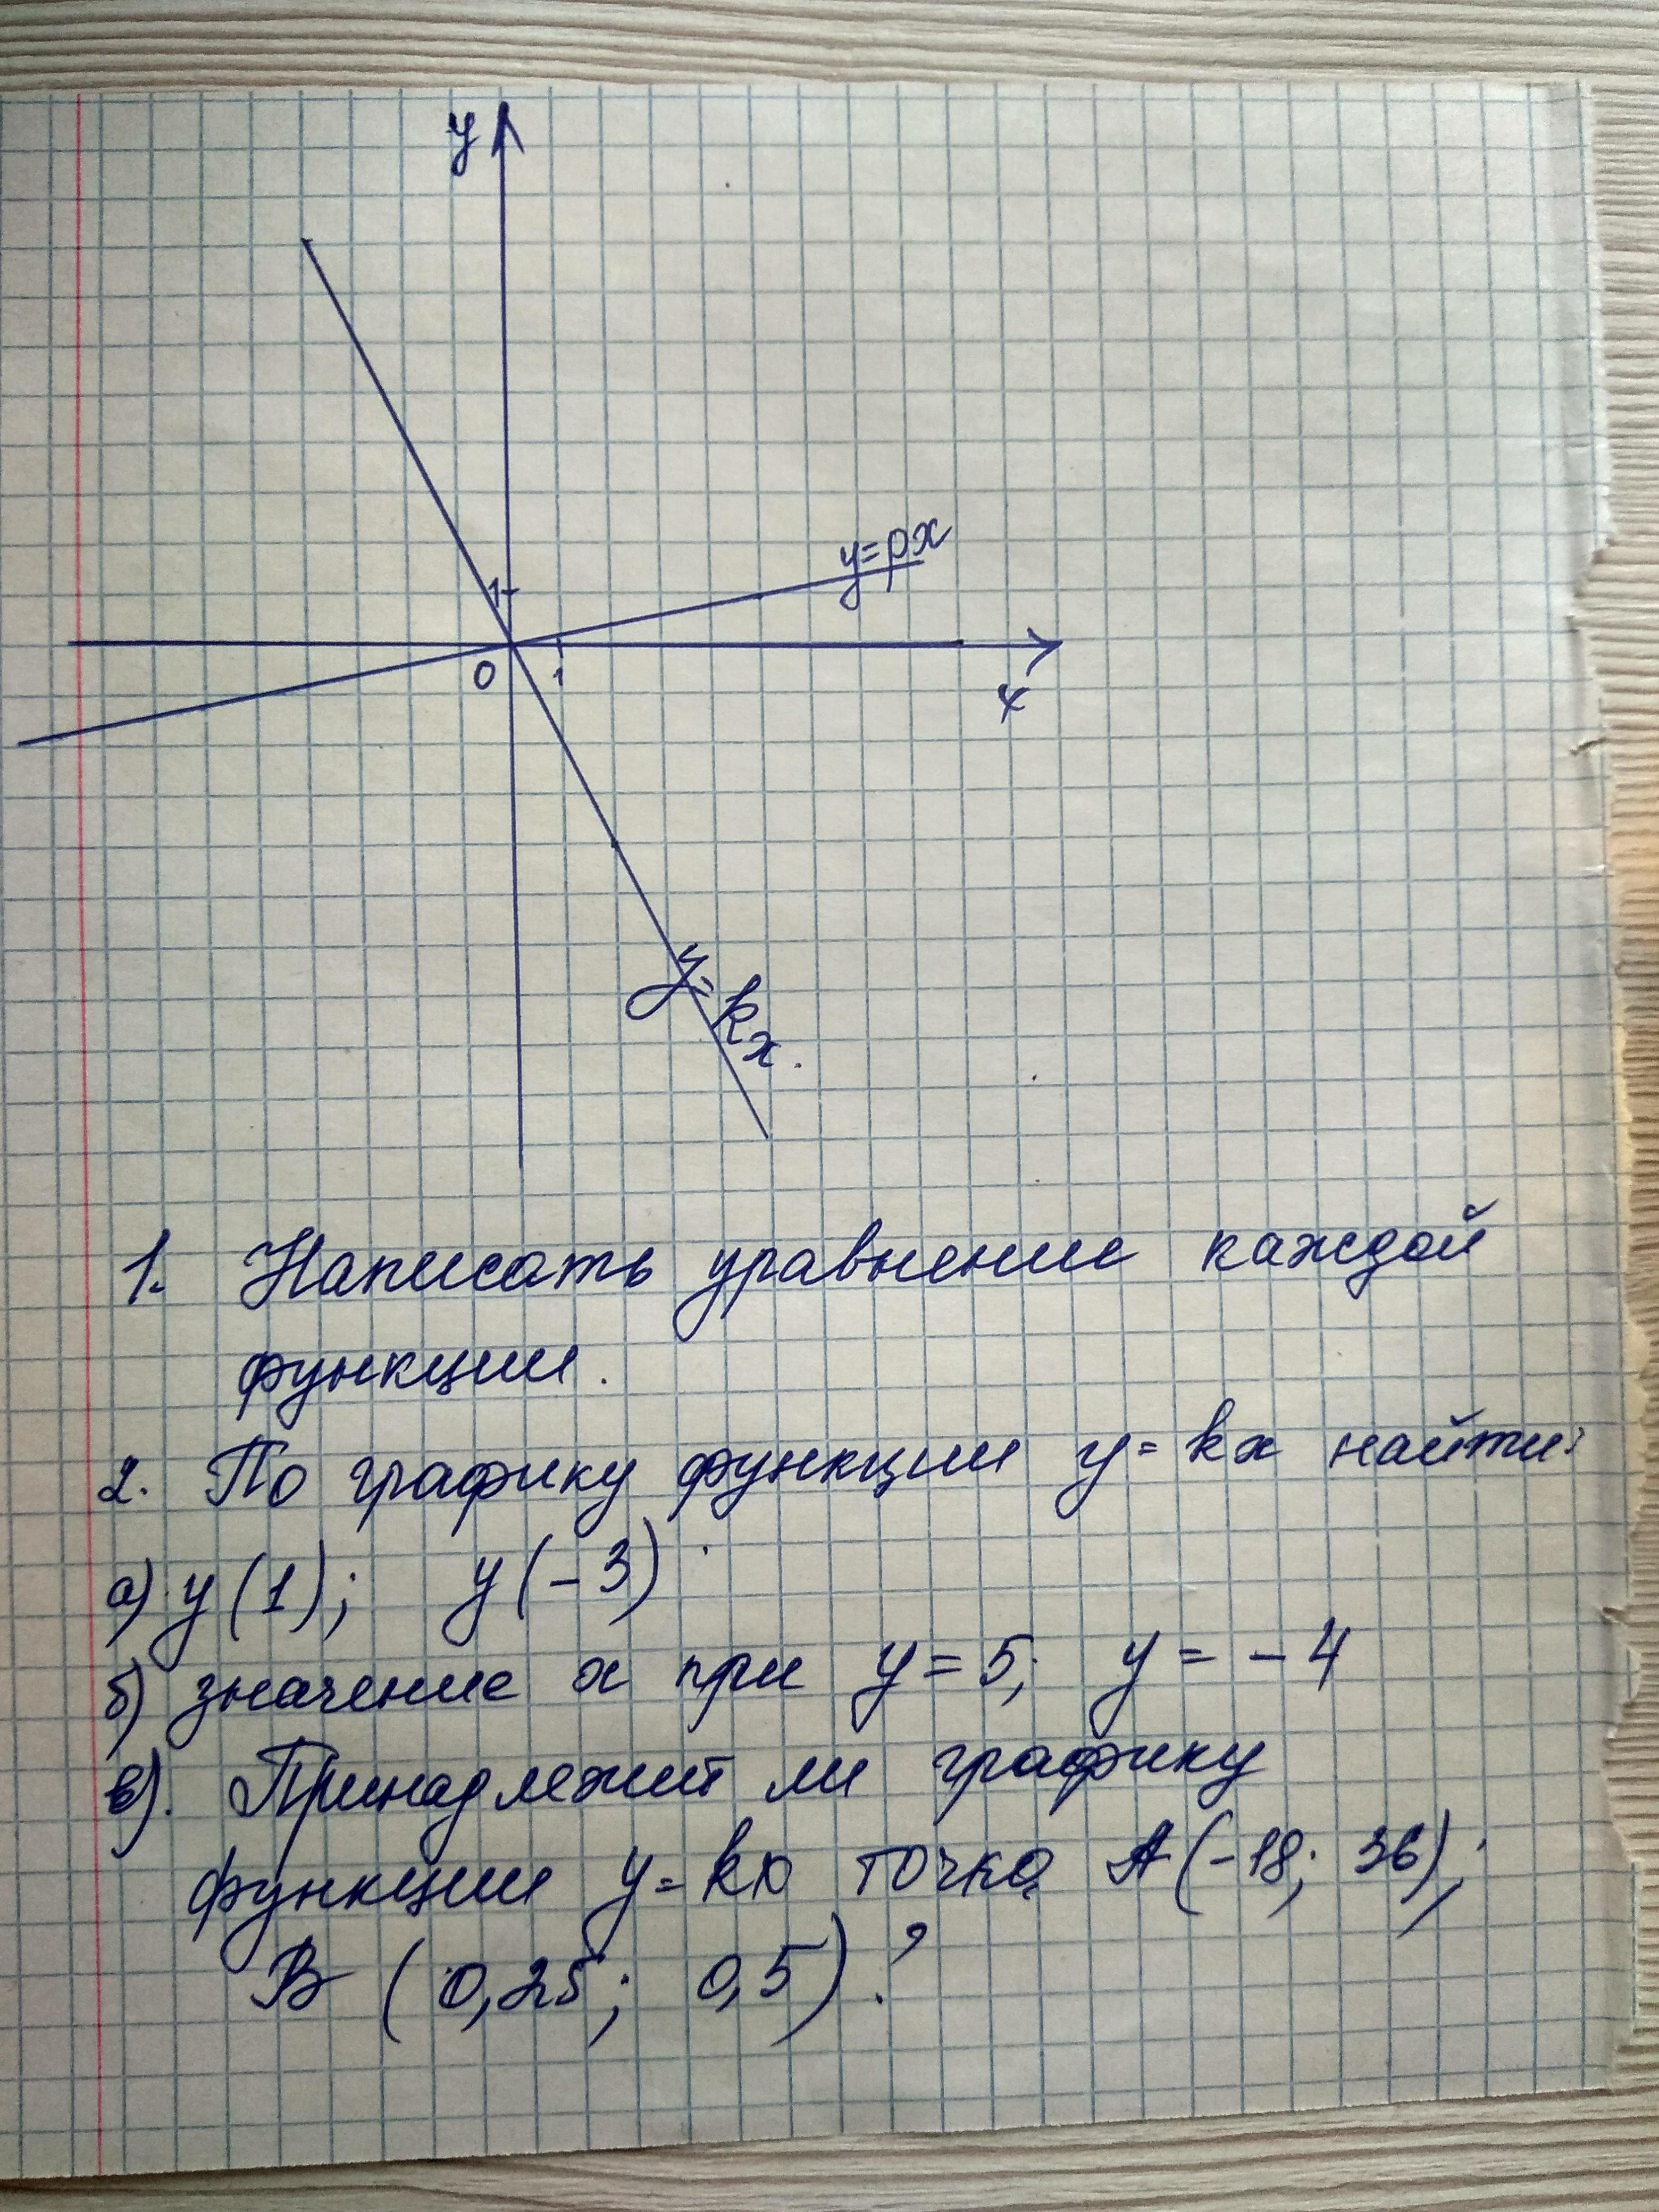 y
y=px
1
0
1
x
y=kx.
1. Написать уравнение каждой
функции.
2. По графику функции y=kx найти:
а) y(1); y(-3)
б) значение x при y=5; y=-4
в). Принадлежит ли графику
функции y=kx точка A(-18; 36);
B (0,25; 0,5)?